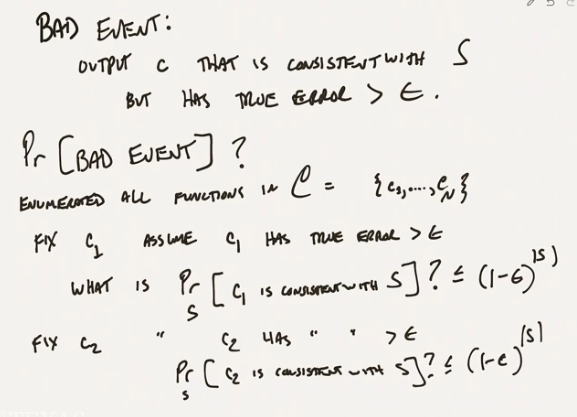 BAD EVENT:
OUTPUT C THAT IS CONSISTENT WITH S
BUT HAS TRUE ERROR > ε.
Pr [BAD EVENT] ?
ENUMERATED ALL FUNCTIONS IN C = {c₁,...,c_N}
FIX C₁ ASSUME C₁ HAS TRUE ERROR > ε
WHAT IS Pr_S [C₁ IS CONSISTENT WITH S]? ≤ (1-ε)^|S|
FIX C₂ " C₂ HAS " " > ε
Pr_S [C₂ IS CONSISTENT WITH S]? ≤ (1-ε)^|S|